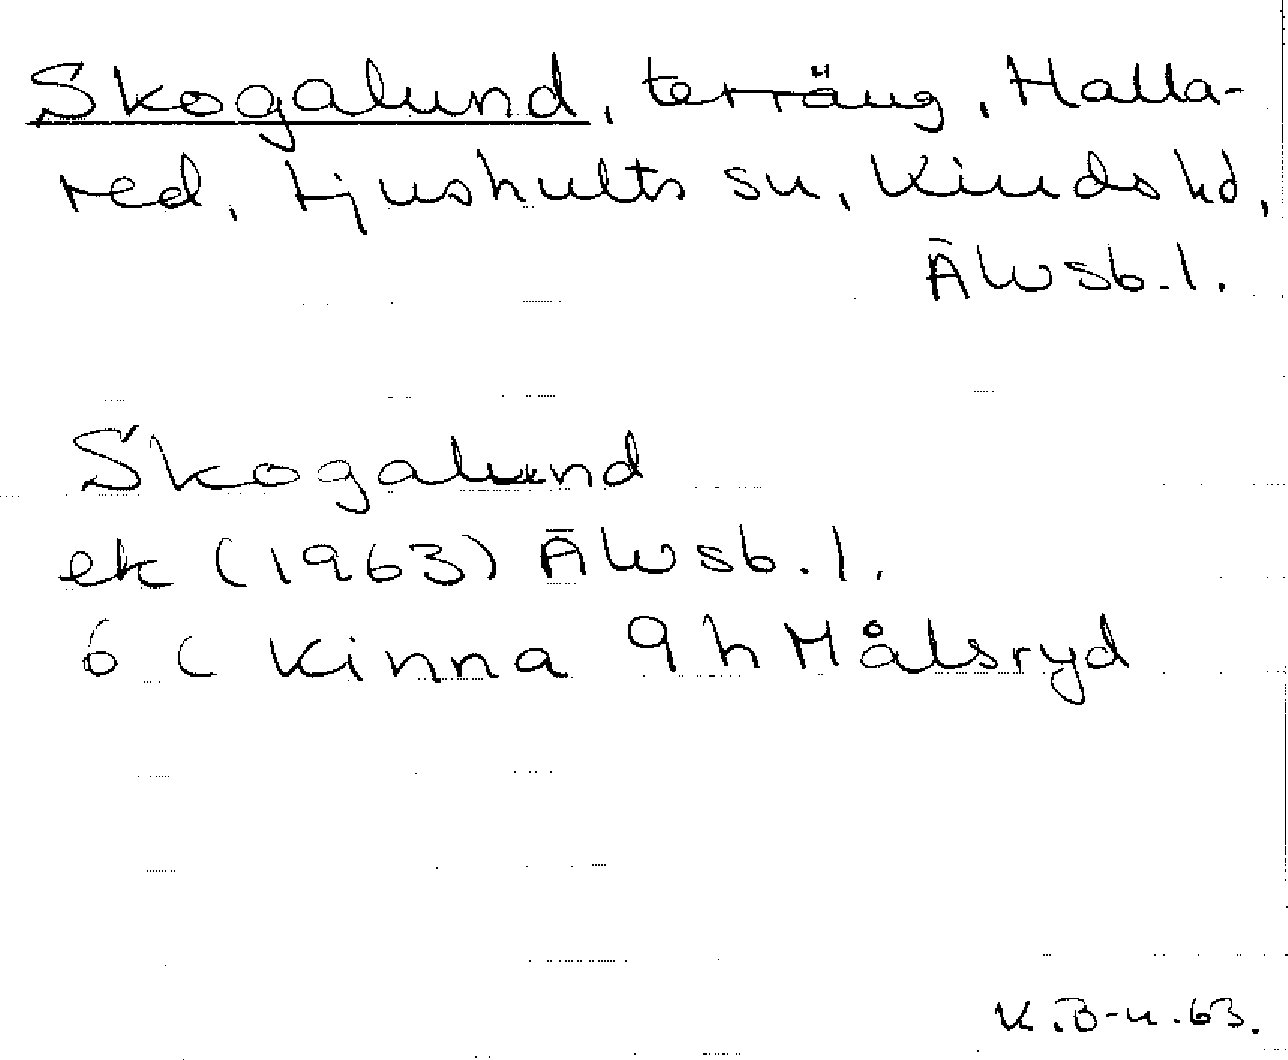 Skogalund, terräng, Halla-
red, Ljushults sn, Kinds hd,
Älvsb. l.
Skogalund
ek (1963) Älvsb. l.
6 C Kinna 9 h Målsryd
K.B-n.63.